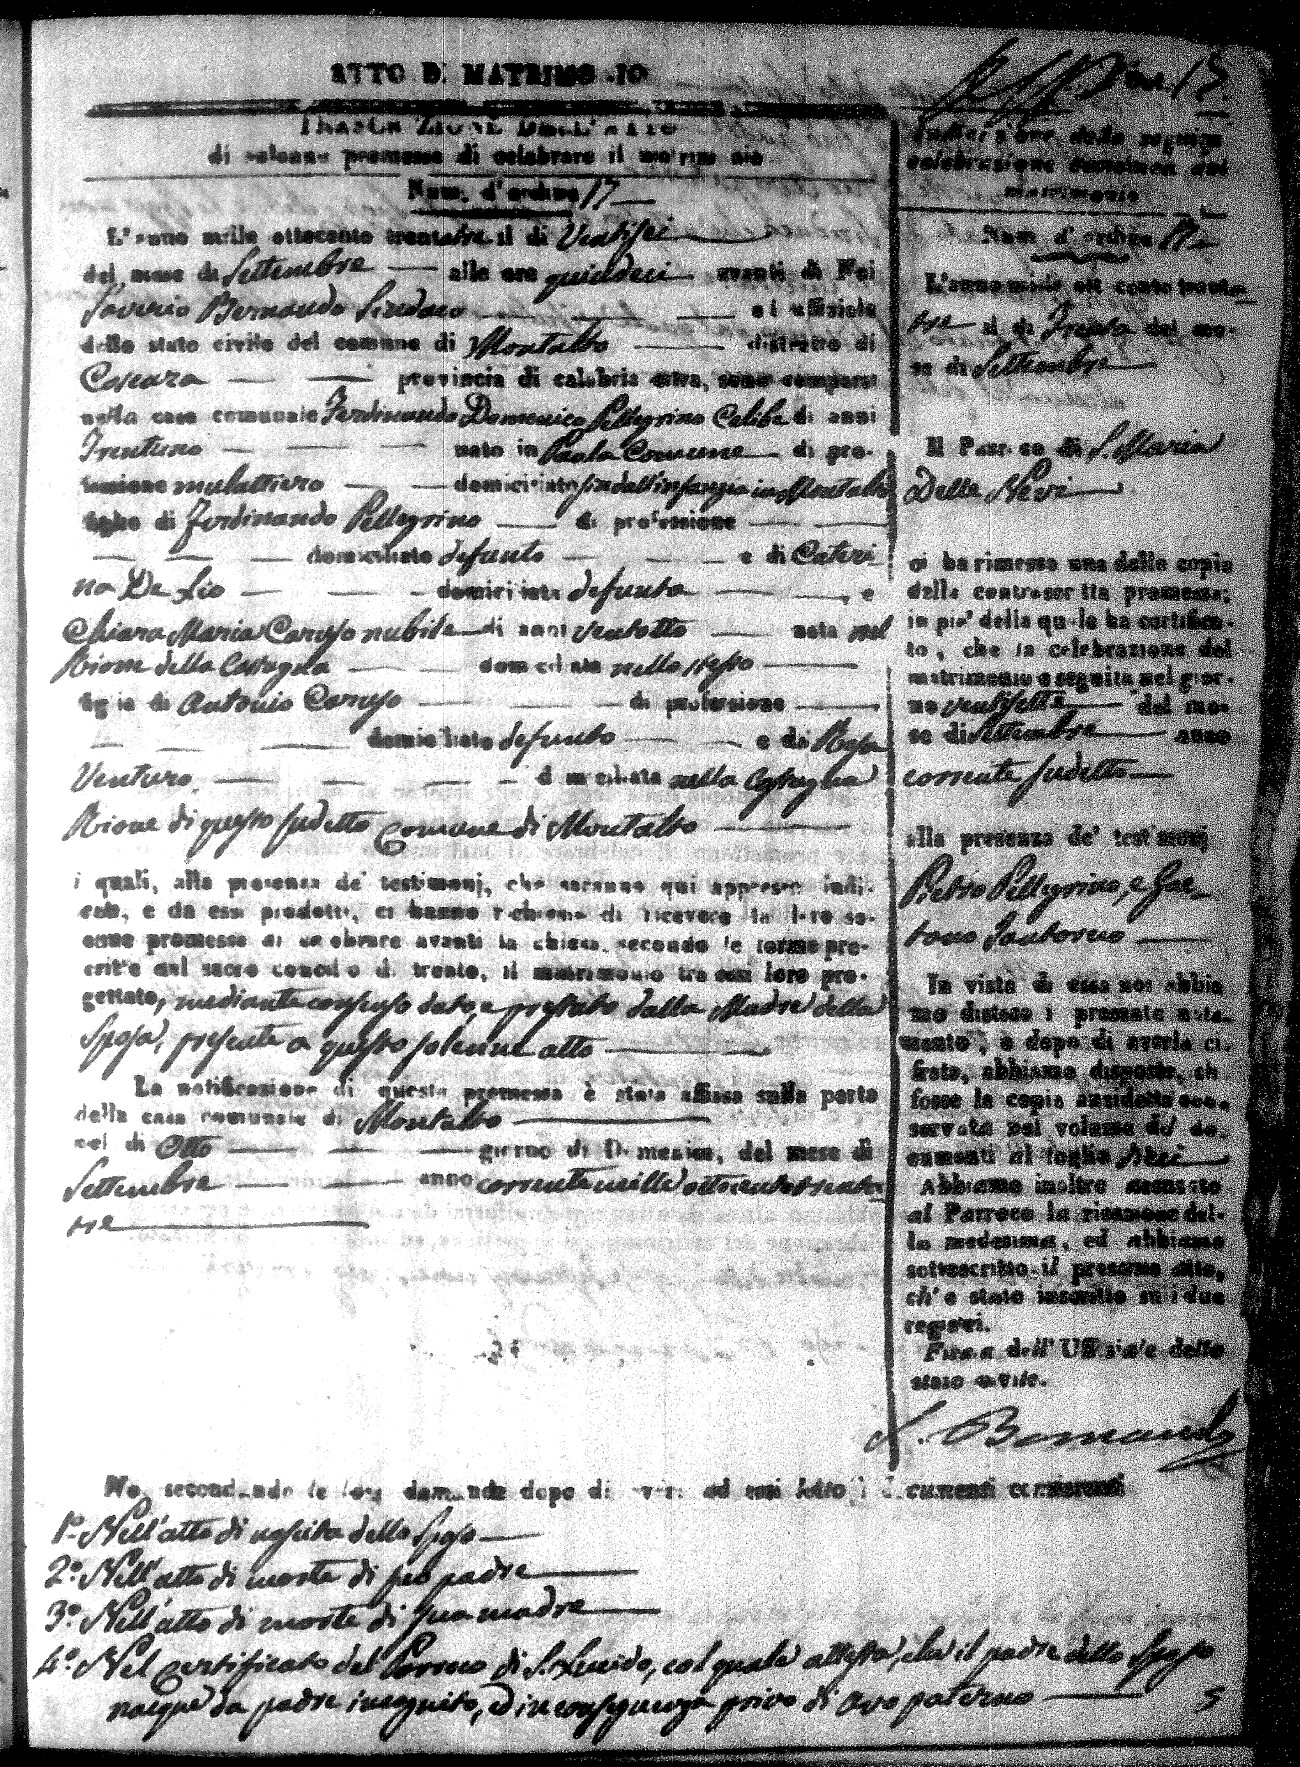 ATTO DI MATRIMONIO
TRASCRIZIONE DELL'ATTO
di solenne promessa di celebrare il matrimonio
Num. d'ordine 17
L'anno mille ottocento trentatre il di Ventisei
del mese di Settembre alle ore quindeci avanti di Noi
Saverio Bernaudo Sindaco ed uffiziale
dello stato civile del comune di Montalto distretto di
Cosenza provincia di calabria citra, sono comparsi
nella casa comunale Ferdinando Domenico Pellegrino Celibe di anni
Trentuno nato in Paola Comune di pro-
fessione mulattiero domiciliato fin dall'infanzia in Montalto
figlio di Ferdinando Pellegrino di professione
domiciliato defunto e di Cateri
na De Lio domiciliata defunta e
Chiara Maria Caruso nubile di anni ventotto nata nel
Rione della domiciliata nello stesso
figlia di Antonio Caruso di professione
domiciliato defunto e di Rosa
Venturo domiciliata nella
Rione di questo sudetto Comune di Montalto
i quali, alla presenza de' testimonj, che saranno qui appresso indi-
cati, e da essi prodotti, ci hanno richiesto di ricevere la loro so-
lenne promessa di celebrare avanti la chiesa, secondo le forme pre-
scritte dal sacro concilio di trento, il matrimonio tra essi loro pro-
gettato, mediante consenso dato, e prestato dalla Madre della
Sposa, presente a questo solenne atto
La notificazione di questa promessa è stata affissa sulla porta
della casa comunale di Montalto
nel di Otto giorno di Domenica, del mese di
Settembre anno corrente mille ottocento trenta
tre
Noi secondando le loro domande dopo di aver ad essi letto i documenti consistenti
1° Nell'atto di nascita dello Sposo
2° Nell'atto di morte di suo padre
3° Nell'atto di morte di sua madre
4° Nel Certificato del Parroco di S. Lucido, col quale attesta, che il padre dello Sposo
nacque da padre incognito, ed in conseguenza privo di avo paterno
5
Indicazione della seguita
celebrazione canonica del
matrimonio
Num. d'ordine 17
L'anno mille ott cento trenta
tre il di Trenta del me-
se di Settembre
Il Parroco di S. Maria
Della Nevi
ci ha rimesso una delle copie
della controscritta promessa;
in piè della quale ha certifica-
to, che la celebrazione del
matrimonio è seguita nel gior-
no ventisette del me-
se di Settembre anno
corrente sudetto
alla presenza de' testimonj
Pietro Pellegrino, e Gae-
tano Santoro
In vista di essa noi abbia
mo disteso il presente nota-
mento, e dopo di averla ci-
frata, abbiamo disposto, ch
fosse la copia anzidetta con-
servata nel volume de' do-
cumenti al foglio
Abbiamo inoltre accusato
al Parroco la ricezione del-
la medesima, ed abbiamo
sottoscritto il presente atto,
ch'e stato inscritto su i due
registri.
Firma dell'Uffiziale dello
stato civile.
S. Bernaudo